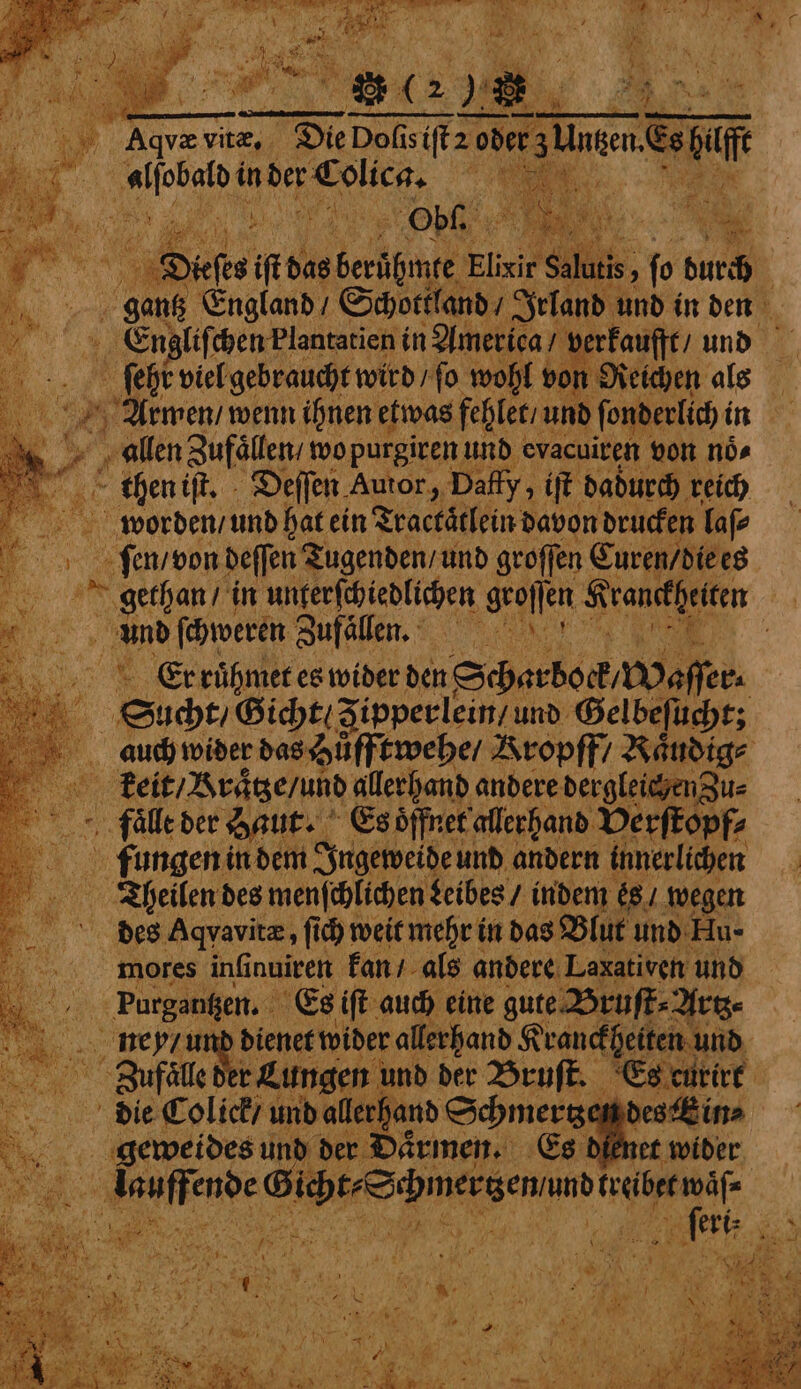 ❁ ( 2 ) ❁
Aqvæ vitæ. Die Doſis iſt 2 oder 3 Untzen. Es hilfft
alſobald in der Colica.
Obſ.
Dieſes iſt das beruͤhmte Elixir Salutis, ſo durch
gantz England / Schottland / Irland und in den
Engliſchen Plantatien in America / verkaufft / und
ſehr viel gebraucht wird / ſo wohl von Reichen als
Armen / wenn ihnen etwas fehlet / und ſonderlich in
allen Zufaͤllen / wo purgiren und evacuiren von noͤ⸗
then iſt. Deſſen Autor, Daffy, iſt dadurch reich
worden / und hat ein Tractaͤtlein davon drucken laſ⸗
ſen / von deſſen Tugenden / und groſſen Curen / die es
gethan / in unterſchiedlichen groſſen Kranckheiten
und ſchweren Zufaͤllen.
Er ruͤhmet es wider den Scharbock / Waſſer⸗
Sucht / Gicht / Zipperlein / und Gelbeſucht;
auch wider das Huͤfftwehe / Kropff / Raͤudig⸗
keit / Kraͤtze / und allerhand andere dergleichen Zu⸗
faͤlle der Haut. Es oͤffnet allerhand Verſtopf⸗
fungen in dem Ingeweide und andern innerlichen
Theilen des menſchlichen Leibes / indem es / wegen
des Aqvavitæ, ſich weit mehr in das Blut und Hu-
mores inſinuiren kan / als andere Laxativen und
Purgantzen. Es iſt auch eine gute Bruſt⸗Artz⸗
ney / und dienet wider allerhand Kranckheiten und
Zufaͤlle der Lungen und der Bruſt. Es curirt
die Colick / und allerhand Schmertzen des Ein⸗
geweides und der Daͤrmen. Es dienet wider
lauffende Gicht⸗Schmertzen / und treibet waͤſ⸗
ſeri⸗